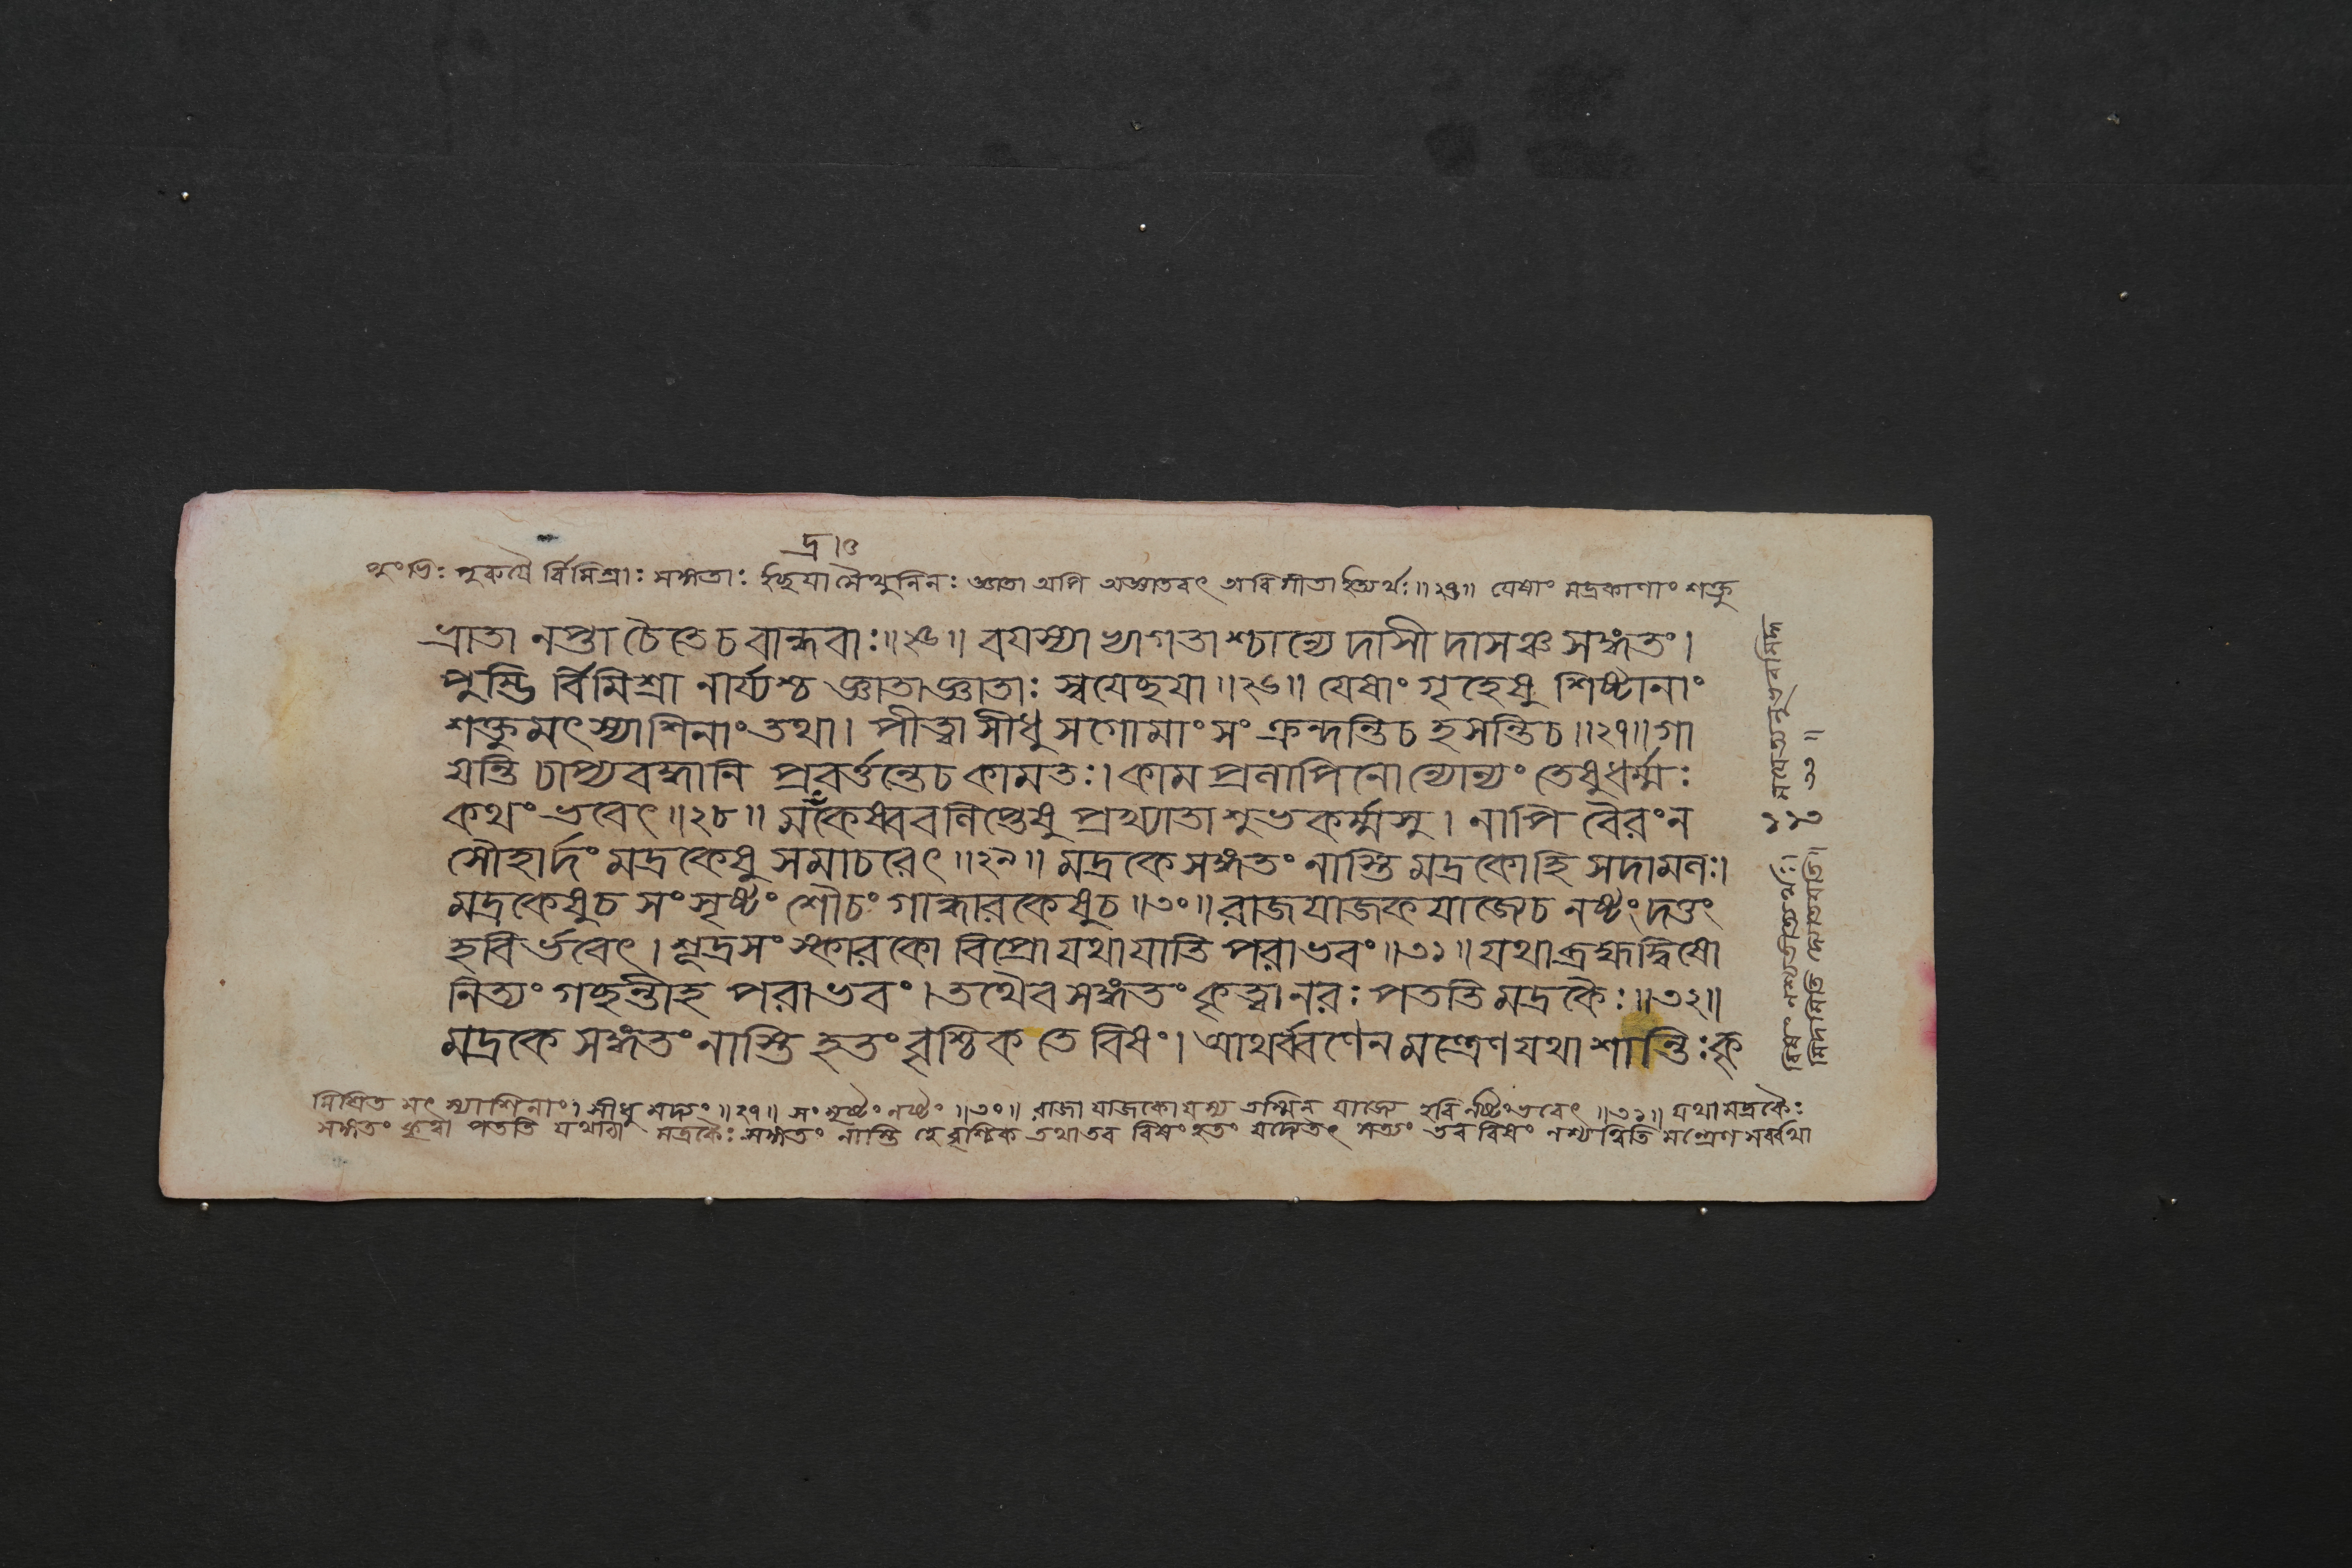 দ্র ৷৫
পুংভিঃ পুরুষৈ র্বিমিশ্রাঃ সঙ্গতাঃ ইচ্ছযা মৈথুনিনঃ জ্ঞাতা অপি অজ্ঞাতবৎ অবিনীতা ইত্যর্থঃ॥২৬॥ যেষাং মদ্রকাণাং শক্তু
ভ্রাতা নপ্তা চৈতেচ বান্ধবাঃ॥২৫॥ বযস্যা ভ্যাগতাশ্চান্যে দাসী দাসঞ্চ সঙ্গতং।
পুম্ভি র্বিমিশ্রা নার্য্যশ্চ জ্ঞাতাজ্ঞাতাঃ স্বযেচ্ছযা॥২৬॥ যেষাং গৃহেষু শিষ্টানাং
শক্তুমৎস্যাশিনাং তথা। পীত্বা সীধু সগোমাংসং ক্রন্দন্তিচ হসন্তিচ॥২৭॥ গা
যন্তি চাপ্যবদ্ধানি প্রবর্ত্তন্তেচ কামতঃ। কাম প্রলাপিনোন্যোন্যং তেষুধর্ম্মঃ
কথং ভবেৎ॥২৮॥ মকেষ্ববলিপ্তেষু প্রখ্যাতাশুভকর্ম্মসু। নাপি বৈরং ন
সৌহার্দং মদ্রকেষু সমাচরেৎ॥২৯॥ মদ্রকে সঙ্গতং নাস্তি মদ্রকোহি সদামলঃ।
মদ্রকেষুচ সংসৃষ্টং শৌচং গান্ধারকেষুচ॥৩০॥ রাজযাজক যাজ্যেচ নষ্টং দত্তং
হবি র্ভবেৎ। শূদ্রসংস্কারকো বিপ্রো যথা যাতি পরাভবং॥৩১॥ যথা ব্রহ্মদ্বিষো
নিত্যং গচ্ছন্তীহ পরাভবং। তথৈব সঙ্গতং কৃত্বা নরঃ পততি মদ্রকৈঃ॥৩২॥
মদ্রকে সঙ্গতং নাস্তি হতং বৃশ্চিক তে বিষং। আথর্ব্বণেন মন্ত্রেণ যথা শান্তিঃ কৃ
মিশ্রিত মৎস্যাশিনাং। সীধু মদ্যং॥২৭॥ সংসৃষ্টং নষ্টং॥৩০॥ রাজা যাজকো যস্য তস্মিন্ যাজ্যে হবি র্নষ্টং ভবেৎ॥৩১॥ যথা মদ্রকৈঃ
সঙ্গতং কৃত্বা পততি যথাবা মদ্রকৈঃ সঙ্গতং নাস্তি হে বৃশ্চিক তথা তব বিষং হতং যদ্যেতৎ সত্যং তব বিষং নশ্যত্বিতি মন্ত্রেণ সর্ব্বথা